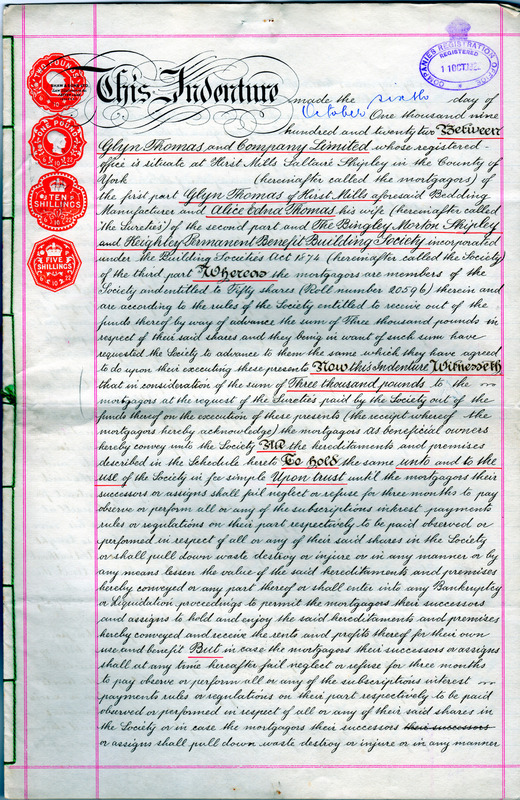 TWO POUNDS
ONE POUND
TEN SHILLINGS
FIVE SHILLINGS
COMPANIES REGISTRATION OFFICE
REGISTERED
This Indenture made the sixth day of
October One thousand nine
hundred and twenty two Between
Glyn Thomas and Company Limited whose registered
office is situate at Hirst Mills Saltaire Shipley in the County of
York (hereinafter called the mortgagors) of
the first part Glyn Thomas of Hirst Mills aforesaid Bedding
Manufacturer and Alice Edna Thomas his wife (hereinafter called
the Sureties) of the second part and The Bingley Morton Shipley
and Keighley Permanent Benefit Building Society incorporated
under the Building Societies Act 1874 (hereinafter called the Society)
of the third part Whereas the mortgagors are members of the
Society and entitled to Fifty shares (Roll number 20596) therein and
are according to the rules of the Society entitled to receive out of the
funds thereof by way of advance the sum of Three thousand pounds in
respect of their said shares and they being in want of such sum have
requested the Society to advance to them the same which they have agreed
to do upon their executing these presents Now this Indenture Witnesseth
that in consideration of the sum of Three thousand pounds to the
mortgagors at the request of the Sureties paid by the Society out of the
funds thereof on the execution of these presents (the receipt whereof the
mortgagors hereby acknowledge) the mortgagors as beneficial owners
hereby convey unto the Society All the hereditaments and premises
described in the Schedule hereto To hold the same unto and to the
use of the Society in fee simple Upon trust until the mortgagors their
successors or assigns shall fail neglect or refuse for three months to pay
observe or perform all or any of the subscriptions interest payments
rules or regulations on their part respectively to be paid observed or
performed in respect of all or any of their said shares in the Society
or shall pull down waste destroy or injure or in any manner or by
any means lessen the value of the said hereditaments and premises
hereby conveyed or any part thereof or shall enter into any Bankruptcy
or Liquidation proceedings to permit the mortgagors their successors
and assigns to hold and enjoy the said hereditaments and premises
hereby conveyed and receive the rents and profits thereof for their own
use and benefit But in case the mortgagors their successors or assigns
shall at any time hereafter fail neglect or refuse for three months
to pay observe or perform all or any of the subscriptions interest
payments rules or regulations on their part respectively to be paid
observed or performed in respect of all or any of their said shares in
the Society or in case the mortgagors their successors their successors
or assigns shall pull down waste destroy or injure or in any manner